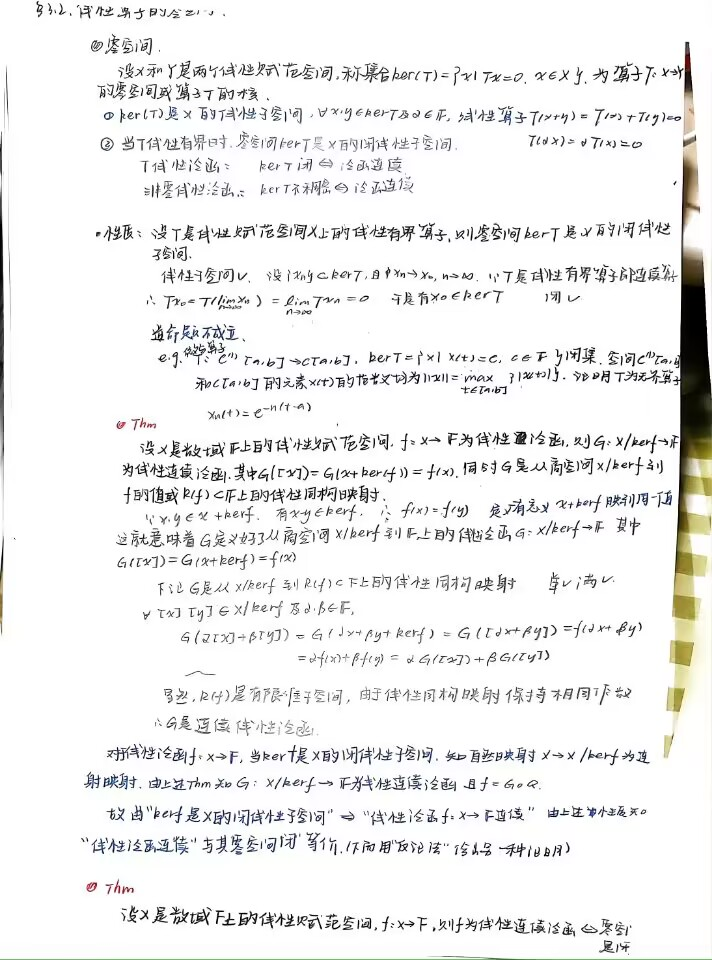 §3.2. 线性算子的
零空间.
设X和Y是两个线性赋范空间,称集合ker(T)={x|Tx=0, x∈X}, 为算子T:X→Y
的零空间或算子T的核.
① ker(T)是X的线性子空间, ∀x,y∈kerT及α∈F, 线性算子T(x+y)=T(x)+T(y)=0
T(αx)=αT(x)=0
② 当T线性有界时,零空间kerT是X的闭线性子空间.
T线性泛函: kerT闭⇔泛函连续
非零线性泛函: kerT不稠密⇔泛函连续
•性质: 设T是线性赋范空间X上的线性有界算子,则零空间kerT是X的闭线性
子空间.
线性子空间√. 设{xn}⊂kerT,且xn→x0, n→∞. ∵T是线性有界算子即连续算子
∴Tx0=T(lim n→∞ xn)=lim n→∞ Txn=0 于是有x0∈kerT 闭√
逆命题不成立.
e.g. 微分算子 T: C⁽¹⁾[a,b]→C[a,b], kerT={x|x(t)=c, c∈F}闭集. 空间C⁽¹⁾[a,b]
和C[a,b]的元素x(t)的范数均为||x||=max t∈[a,b]{|x(t)|}. 证明T为无界算子
xn(t)=e^{-n(t-a)}
Thm
设X是数域F上的线性赋范空间, f:X→F为线性泛函,则G:X/kerf→F
为线性连续泛函,其中G([x])=G(x+ker(f))=f(x).同时G是从商空间X/kerf到
f的值域R(f)⊂F上的线性同构映射.
∵x,y∈x+kerf, 有x-y∈kerf, ∴f(x)=f(y) 定义有意义 x+kerf映到同一值
这就意味着G定义好了从商空间X/kerf到F上的线性泛函G:X/kerf→F 其中
G([x])=G(x+kerf)=f(x)
下证G是从X/kerf到R(f)⊂F上的线性同构映射 单√满√.
∀[x][y]∈X/kerf及α,β∈F,
G(α[x]+β[y])=G(αx+βy+kerf)=G([αx+βy])=f(αx+βy)
=αf(x)+βf(y)=αG([x])+βG([y])
显然,R(f)是有限维子空间,由于线性同构映射保持相同维数
∴G是连续线性泛函.
对于线性泛函f:X→F,当kerf是X的闭线性子空间,知自然映射X→X/kerf为连
射映射.由上述Thm知G:X/kerf→F为线性连续泛函且f=G∘Q.
故由"kerf是X的闭线性子空间"⇒"线性泛函f:X→F连续" 由上述性质知
"线性泛函连续"与其零空间"闭"等价.(下面用"反证法"给出另一种证明)
Thm
设X是数域F上的线性赋范空间, f:X→F, 则f为线性连续泛函⇔零空间
是闭